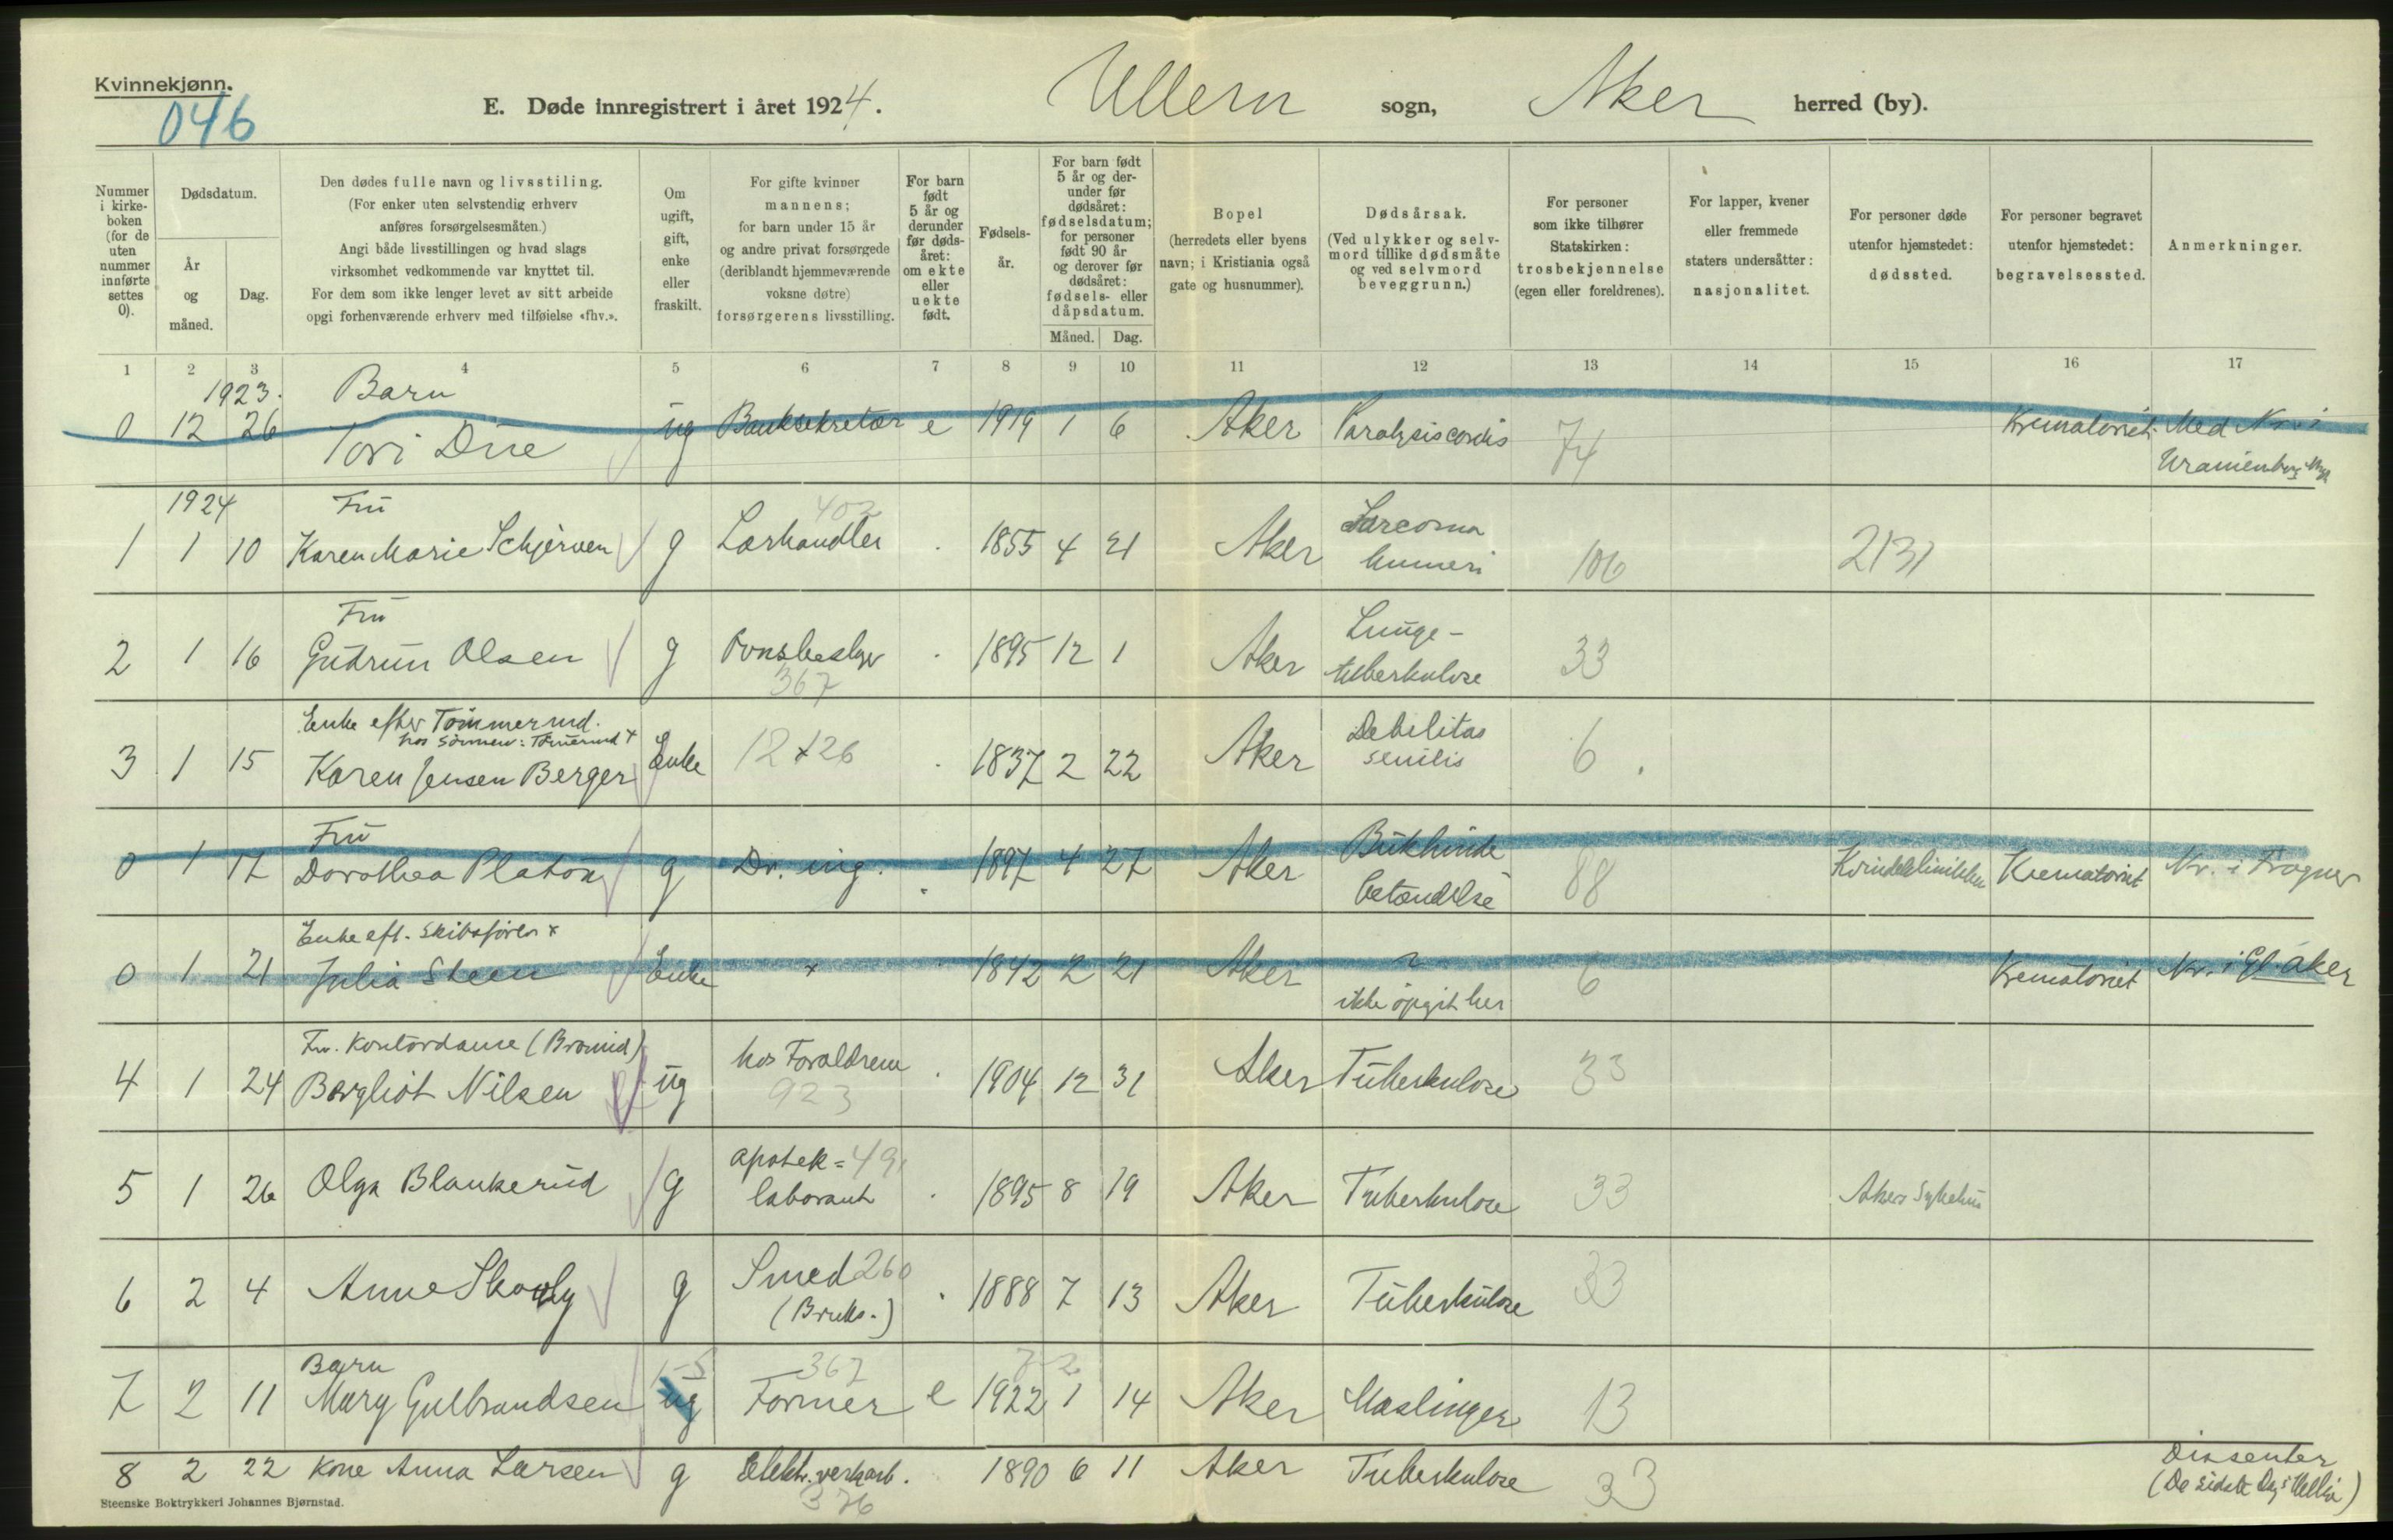 Kvinnekjønn.
046
E. Døde innregistrert i året 1924. Ullern sogn, Aker herred (by).
Nummer i kirke- boken (for de uten nummer innførte settes 0).
Dødsdatum.
År og måned.
Dag.
Den dødes fulle navn og livsstiling.
(For enker uten selvstendig erhverv
anføres forsørgelsesmåten.)
Angi både livsstillingen og hvad slags
virksomhet vedkommende var knyttet til.
For dem som ikke lenger levet av sitt arbeide
opgi forhenværende erhverv med tilføielse «fhv.».
Om ugift, gift, enke eller fraskilt.
For gifte kvinner
mannens;
for barn under 15 år
og andre privat forsørgede
(deriblandt hjemmeværende
voksne døtre)
forsørgerens livsstilling.
For barn født 5 år og derunder før døds- året: om ekte eller uekte født.
Fødsels- år.
For barn født 5 år og der- under før dødsåret: fødselsdatum; for personer født 90 år og derover før dødsåret: fødsels- eller dåpsdatum.
Måned. Dag.
Bopel
(herredets eller byens
navn; i Kristiania også
gate og husnummer).
Dødsårsak.
(Ved ulykker og selv-
mord tillike dødsmåte
og ved selvmord
beveggrunn.)
For personer
som ikke tilhører
Statskirken:
trosbekjennelse
(egen eller foreldrenes).
For lapper, kvener
eller fremmede
staters undersåtter:
nasjonalitet.
For personer døde
utenfor hjemstedet:
dødssted.
For personer begravet
utenfor hjemstedet:
begravelsessted.
Anmerkninger.
1 2 3 4 5 6 7 8 9 10 11 12 13 14 15 16 17
1923. Barn
0 12 26 Tovi Due ug Banksekretær e 1919 1 6 Aker Paralysis cordis 74 Krematoriet Med Nr. i
Uranienborg
1924 Fru 402 Sarcoma
1 1 10 Karen Marie Schjerven g Lærhandler 1855 4 21 Aker humeri 106 2131
Fru Lunge-
2 1 16 Gudrun Olsen g 1895 12 1 Aker tuberkulose 33
367
Enke efter Tømmermd.
hos sønnen: x Debilitas
3 1 15 Karen Jensen Berger Enke 12x26 1837 2 22 Aker senilis 6
Fru Bukhinde
0 1 17 Dorothea Platou g Dr. ing. 1897 4 27 Aker betændelse 88 Kvindeklinikken Krematoriet Nr. i Frogner
Enke eft. skibsfører x
0 1 21 Julia Steen Enke x 1842 2 21 Aker ? 6 Krematoriet Nr. i Gl. Aker
ikke opgit her
Fv. Kontordame
4 1 24 Borgliot Nilsen ug hos Forældrene 1904 12 31 Aker Tuberkulose 33
923
apotek= 491
5 1 26 Olga Blankerud g laborant 1895 8 19 Aker Tuberkulose 33 Akers Sykehus
6 2 4 Anne Skovly g Smed 260 1888 7 13 Aker Tuberkulose 33
(Bruks.)
Barn 1-5 367 7-2
7 2 11 Mary Gulbrandsen ug Former e 1922 1 14 Aker Mæslinger 13
8 2 22 Kone Anna Larsen g Elektr. verksarb. 1890 6 11 Aker Tuberkulose 33 Dissenter
376 (De sidste
Steenske Boktrykkeri Johannes Bjørnstad.